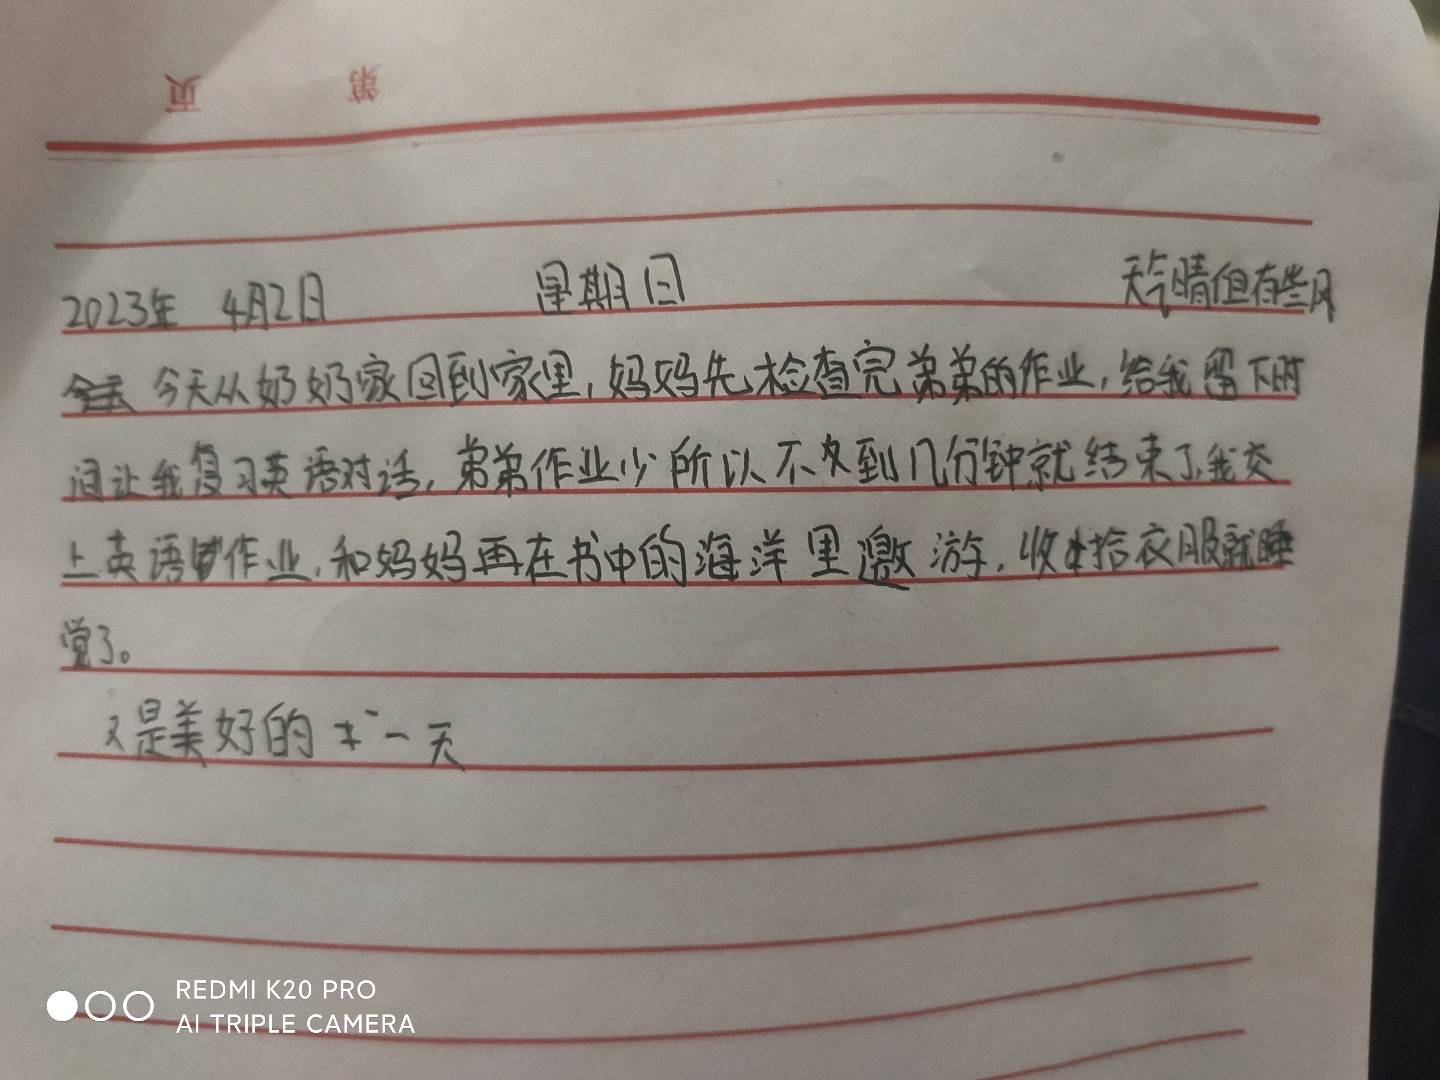 第 页
2023年 4月2日 星期日 天气晴但有些风
今天从奶奶家回到家里,妈妈先检查完弟弟的作业,给我留下时
间让我复习英语对话,弟弟作业少所以不到几分钟就结束了,我交
上英语作业,和妈妈再在书中的海洋里邀游,收拾衣服就睡
觉了。
又是美好的一天
REDMI K20 PRO
AI TRIPLE CAMERA